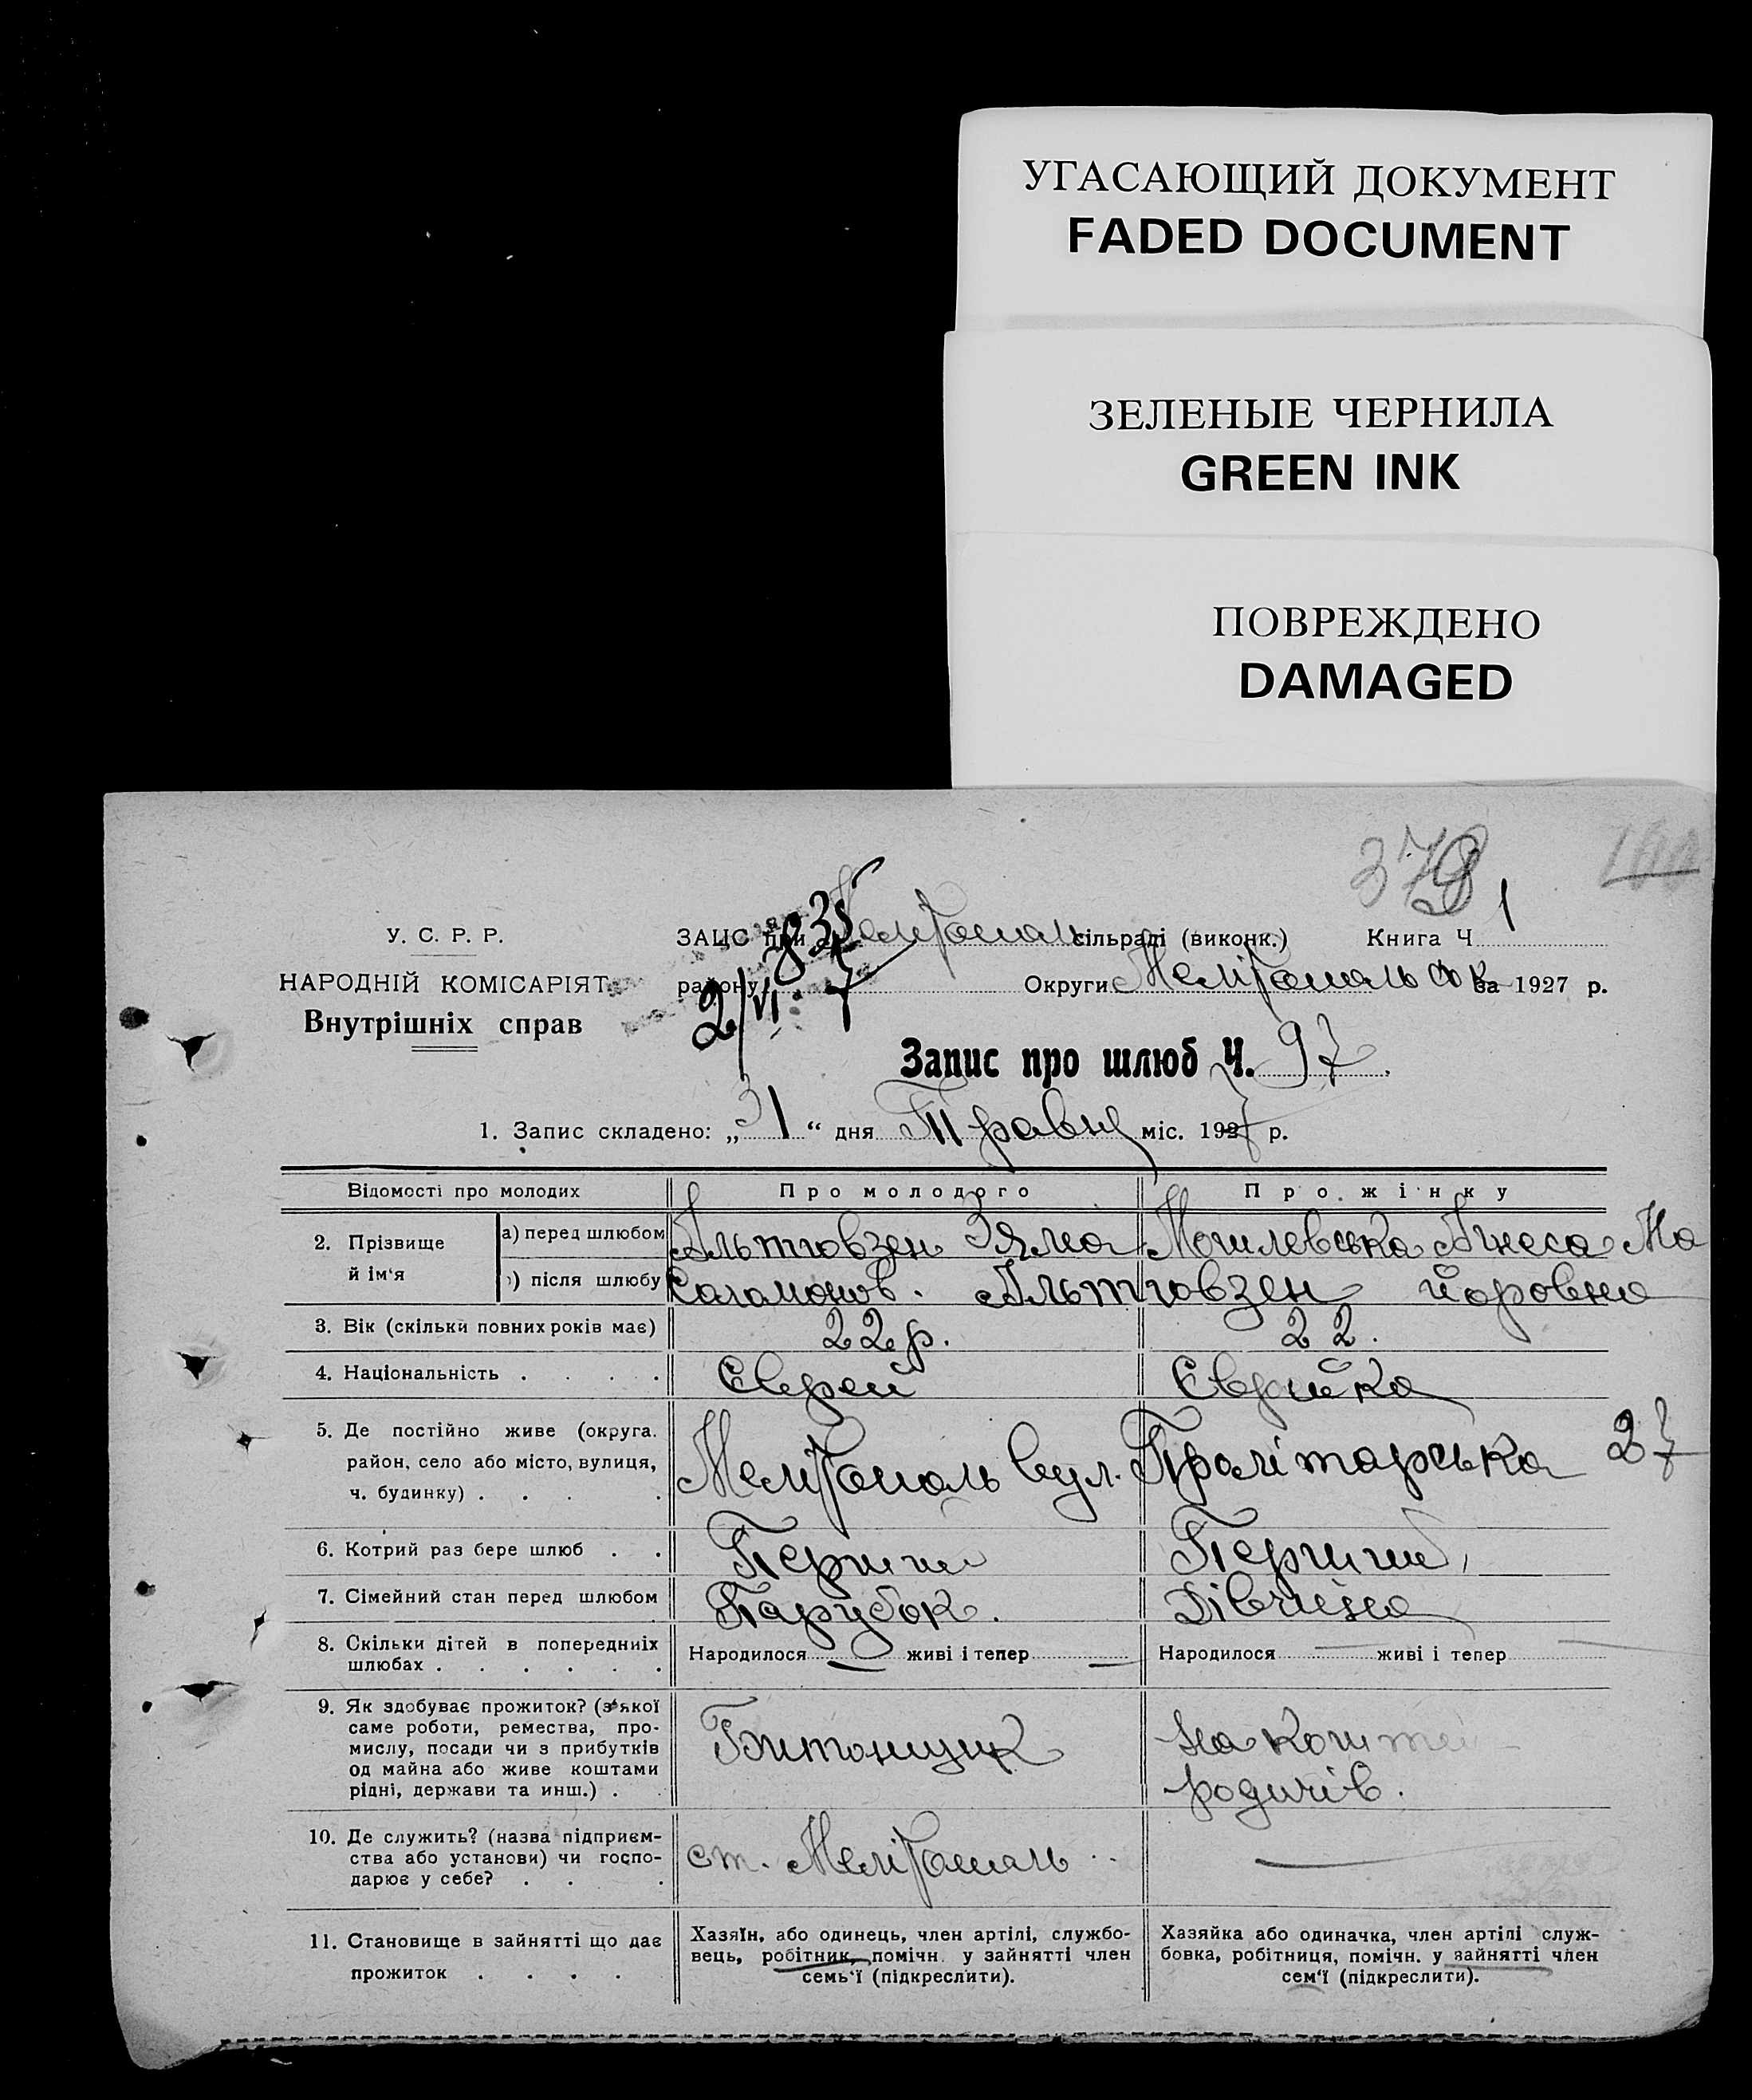 УГАСАЮЩИЙ ДОКУМЕНТ
FADED DOCUMENT
ЗЕЛЕНЫЕ ЧЕРНИЛА
GREEN INK
ПОВРЕЖДЕНО
DAMAGED
378 1
У. С. Р. Р.
НАРОДНІЙ КОМІСАРІЯТ
Внутрішніх справ
835
2/VI 7
ЗАЦС при Мелітополь сільраді (виконк.) Книга Ч 1
району Округи Мелітопольськ за 1927 р.
Запис про шлюб Ч. 97
1. Запис складено: „31“ дня Травня міс. 1927 р.
Відомості про молодих Про молодого Про жінку
2. Прізвище й ім‘я
а) перед шлюбом Альтговзен Зяма Могилевська Агнеса Ма
б) після шлюбу Саламонов. Альтговзен йоровна
3. Вік (скільки повних років має) 22 р. 22.
4. Національність . . . . Єврей Єврейка
5. Де постійно живе (округа.
район, село або місто, вулиця,
ч. будинку) . . . . Мелітополь вул. Пролітарська 27
6. Котрий раз бере шлюб . . Перший Перший
7. Сімейний стан перед шлюбом Парубок. Дівчина
8. Скільки дітей в попередниіх
шлюбах . . . . . . Народилося — живі і тепер — Народилося — живі і тепер —
9. Як здобуває прожиток? (з якої
саме роботи, ремества, про-
мислу, посади чи з прибутків
од майна або живе коштами
рідні, держави та инш.) . . На кошти
родичів.
10. Де служить? (назва підприєм-
ства або установи) чи госпо-
дарює у себе? . . . ст. Мелітополь —
11. Становище в зайнятті що дає
прожиток . . . .
Хазяїн, або одинець, член артілі, службо-
вець, робітник, помічн. у зайнятті член
семь‘ї (підкреслити).
Хазяйка або одиначка, член артілі служ-
бовка, робітниця, помічн. у зайнятті член
сем‘ї (підкреслити).